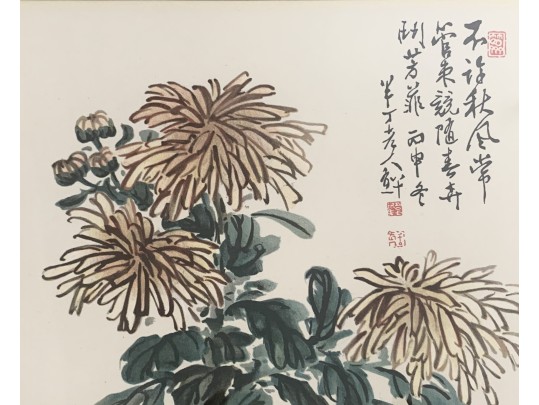 不许秋风常
管束競随春卉
鬥芳菲 丙申冬
半丁老人